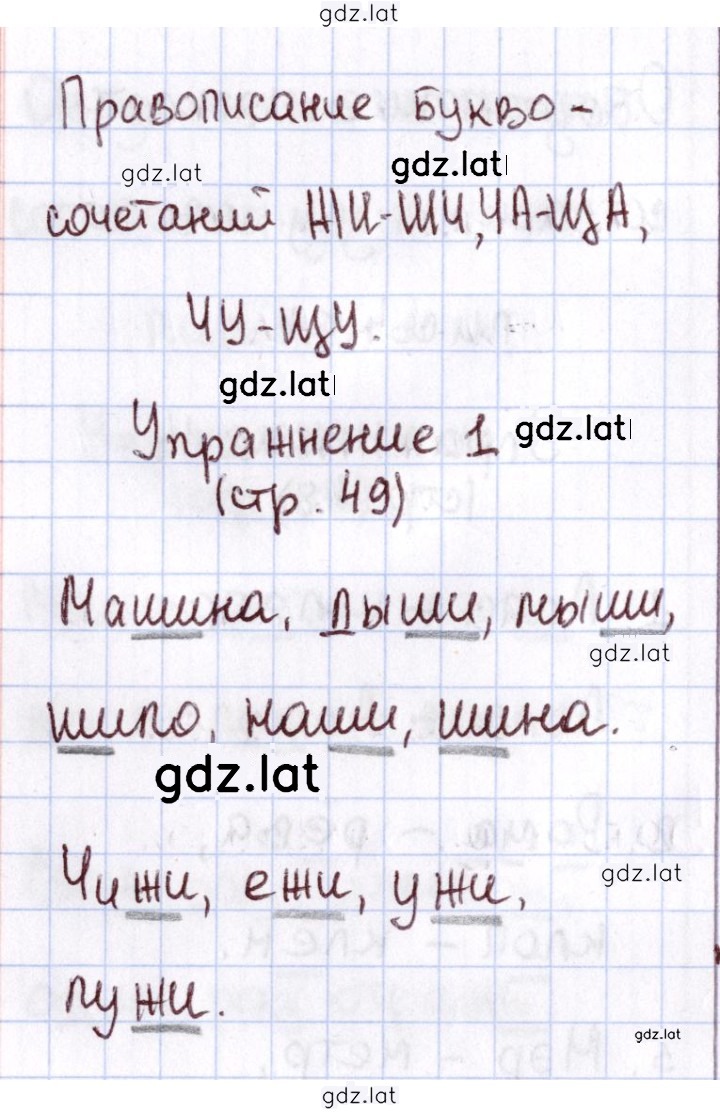 gdz.lat
Правописание букво-
gdz.lat
gdz.lat
сочетаний ЖИ-ШИ, ЧА-ЩА,
ЧУ-ЩУ.
gdz.lat
Упражнение 1
gdz.lat
(стр. 49)
Машина, лыши, мыши,
gdz.lat
шило, наши, шина.
gdz.lat
Чижи, ежи, ужи,
gdz.lat
лужи.
gdz.lat
gdz.lat